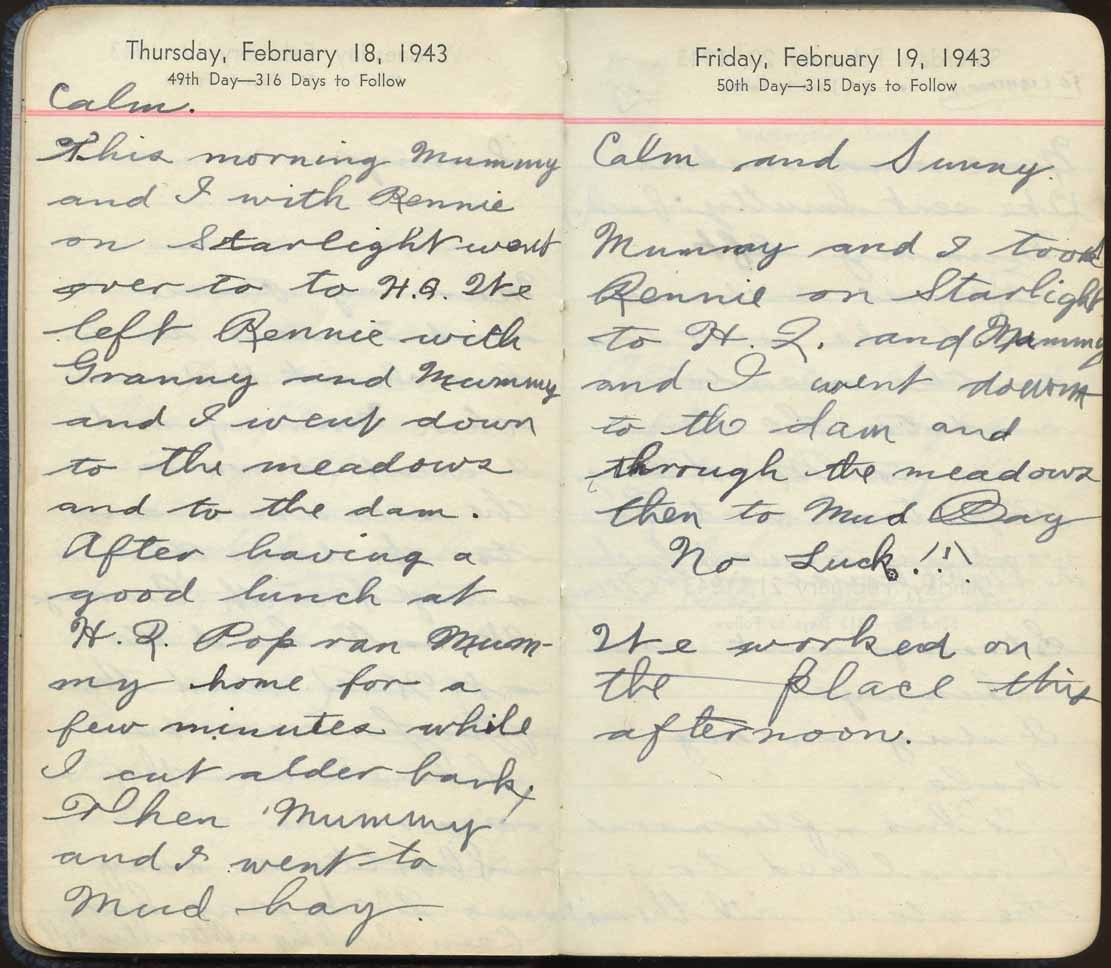 Thursday, February 18, 1943
49th Day—316 Days to Follow
Calm.
This morning Mummy
and I with Rennie
on Starlight went
over to to H.Q. We
left Rennie with
Granny and Mummy
and I went down
to the meadows
and to the dam.
After having a
good lunch at
H.Q. Pop ran Mum-
my home for a
few minutes while
I cut alder bark,
Then Mummy
and I went to
Mud bay.
Friday, February 19, 1943
50th Day—315 Days to Follow
Calm and Sunny.
Mummy and I took
Rennie on Starlight
to H. Q. and Mummy
and I went down
to the dam and
through the meadows
then to Mud Bay
No Luck!!!
We worked on
the place this
afternoon.